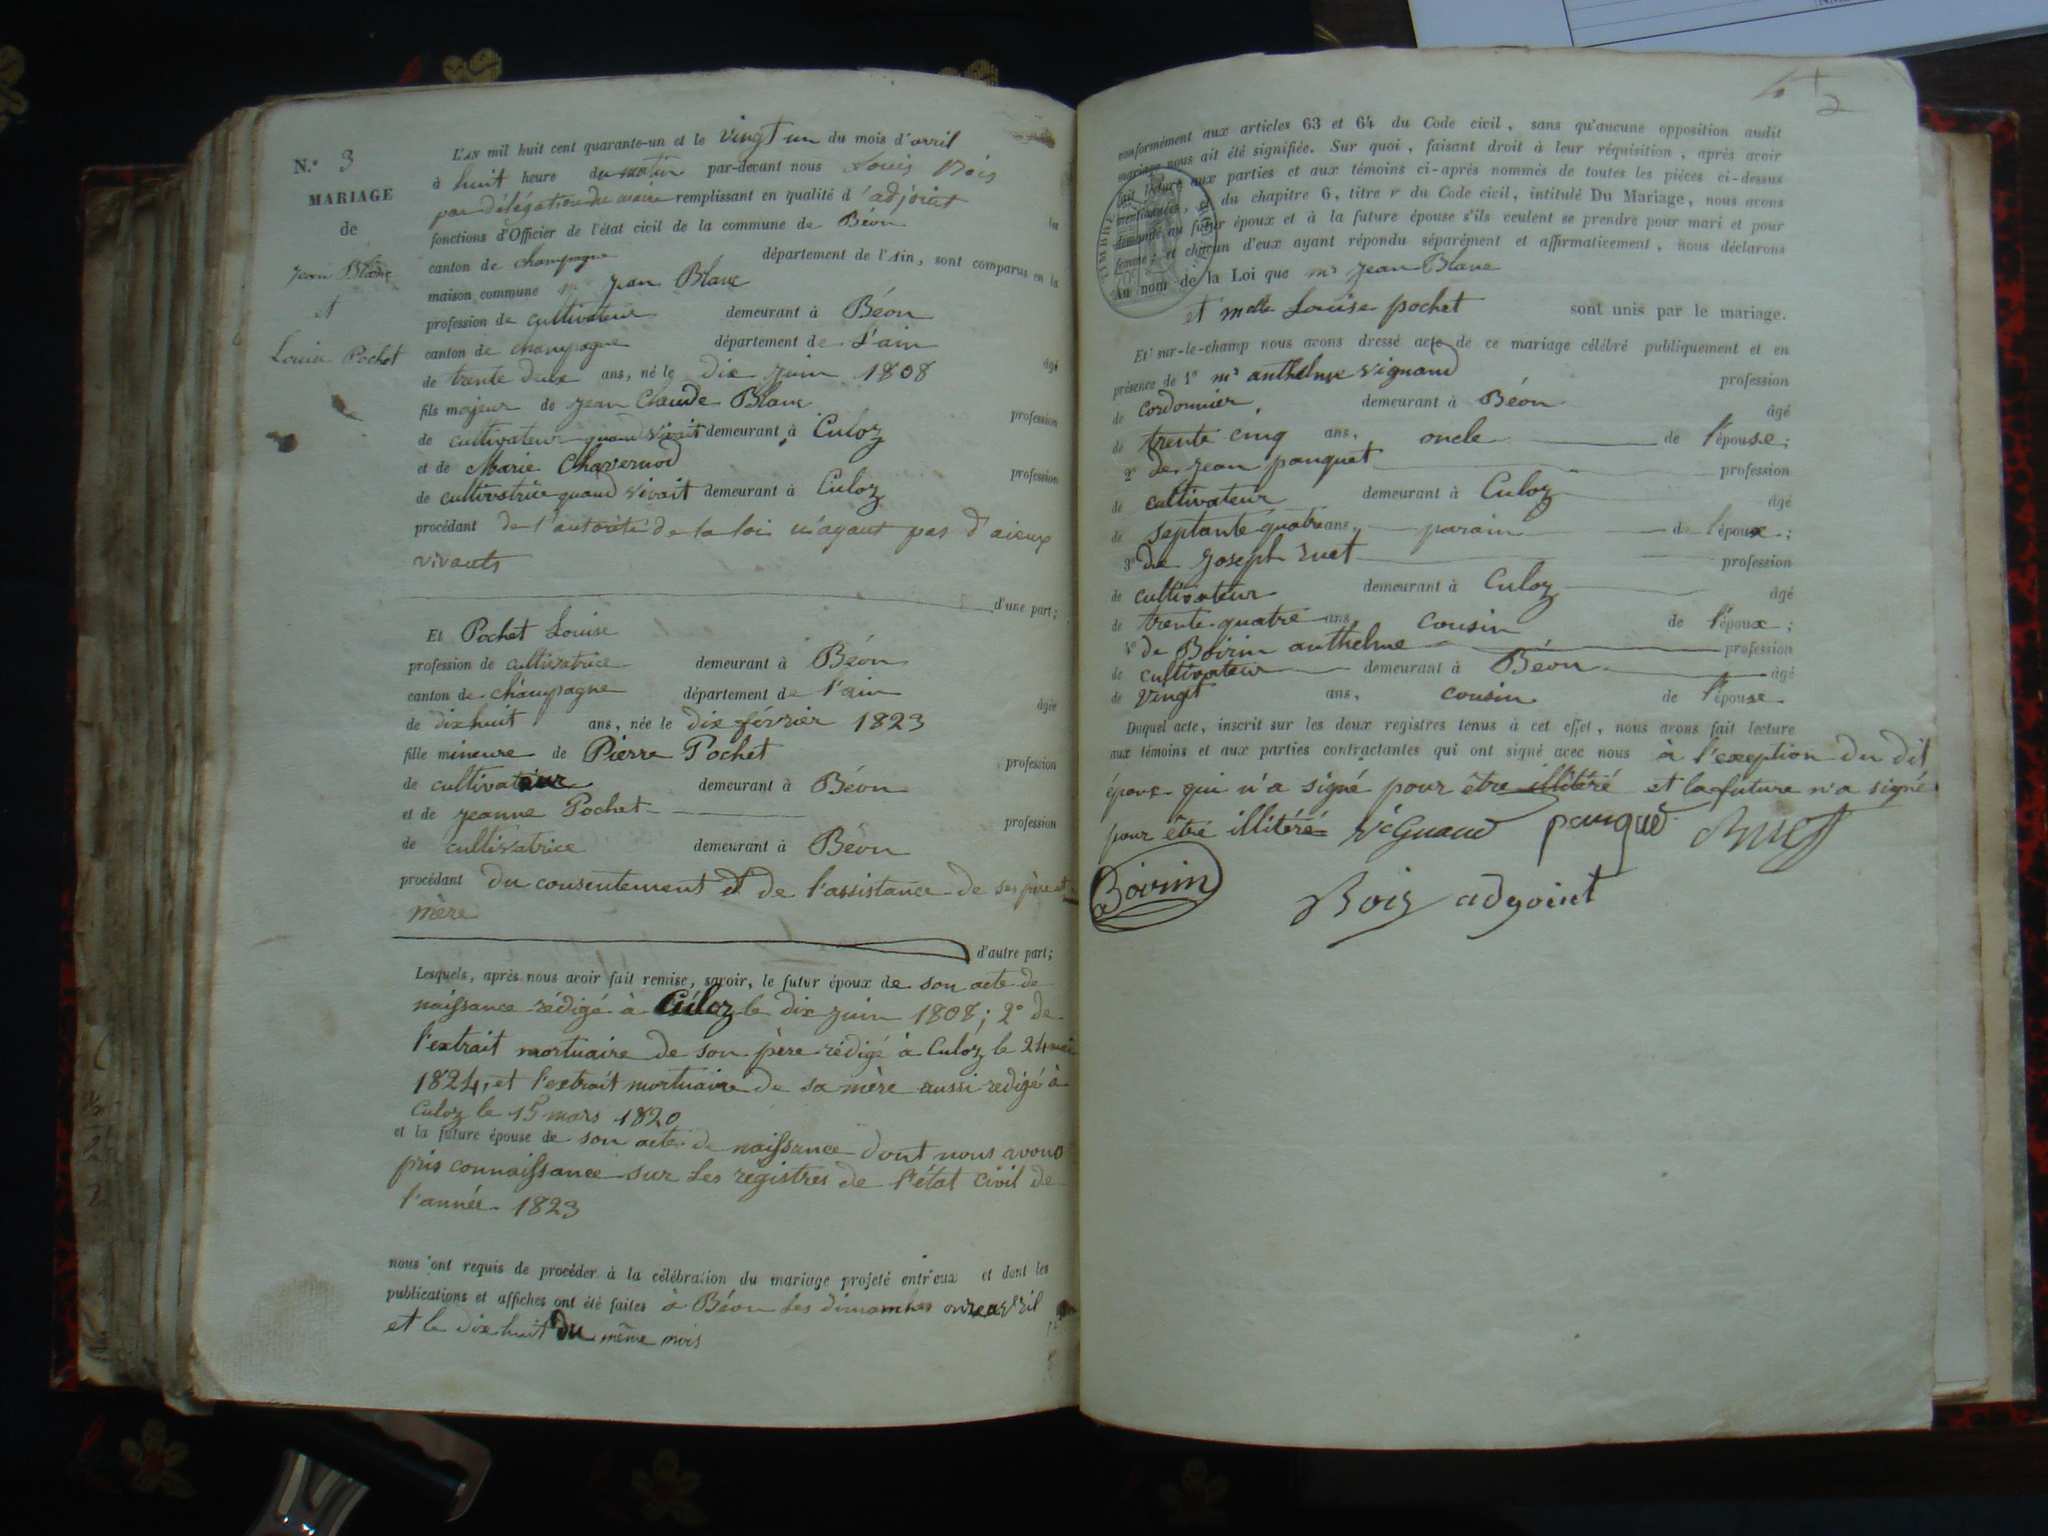 N.° 3
MARIAGE
de
Jean Blanc
et
Louise Pochet
L'AN mil huit cent quarante-un et le vingt un du mois d'avril
à huit heure du matin par-devant nous Louis Bois
par délégation du maire remplissant en qualité d'adjoint les
fonctions d'Officier de l'état civil de la commune de Béon
canton de champagne département de l'Ain, sont comparus en la
maison commune mr jean Blanc
profession de cultivateur demeurant à Béon
canton de champagne département de L'ain âgé
de trente deux ans, né le dix juin 1808
fils majeur de jean Claude Blanc profession
de cultivateur quand vivait demeurant à Culoz
et de Marie Chavernod profession
de cultivatrice quand vivait demeurant à Culoz
procédant de l'autorité de la loi n'ayant pas d'aieux
vivants
d'une part;
Et Pochet Louise
profession de cultivatrice demeurant à Béon
canton de champagne département de l'ain âgée
de dixhuit ans, née le dix février 1823
fille mineure de Pierre Pochet profession
de cultivateur demeurant à Béon
et de jeanne Pochet profession
de cultivatrice demeurant à Béon
procédant du consentement et de l'assistance de ses père et
mère
d'autre part;
Lesquels, après nous avoir fait remise, savoir, le futur époux de son acte de
naissance rédigé à Culoz le dix juin 1808; 2° de
l'extrait mortuaire de son père rédigé à Culoz le 24 mai
1824, et l'extrait mortuaire de sa mère aussi redigé à
Culoz le 15 mars 1820
et la future épouse de son acte de naissance dont nous avons
pris connaissance sur les registres de l'état civil de
l'année 1823
nous ont requis de procéder à la célébration du mariage projeté entr'eux et dont les
publications et affiches ont été faites à Béon les dimanches onze avril
et le dix huit du même mois
conformément aux articles 63 et 64 du Code civil, sans qu'aucune opposition audit
mariage nous ait été signifiée. Sur quoi, faisant droit à leur réquisition, après avoir
fait lecture aux parties et aux témoins ci-après nommés de toutes les pièces ci-dessus
mentionnées, et du chapitre 6, titre v du Code civil, intitulé Du Mariage, nous avons
demandé au futur époux et à la future épouse s'ils veulent se prendre pour mari et pour
femme; et chacun d'eux ayant répondu séparément et affirmativement, nous déclarons
Au nom de la Loi que mr jean Blanc
et melle Louise pochet sont unis par le mariage.
Et sur-le-champ nous avons dressé acte de ce mariage célébré publiquement et en
présence de 1° mr anthelme vignaud profession
de Cordonnier demeurant à Béon âgé
de trente cinq ans, oncle de l'épouse;
2° de jean pauquet profession
de cultivateur demeurant à Culoz âgé
de septante quatre ans, parain de l'époux;
3° de joseph ruet profession
de cultivateur demeurant à Culoz âgé
de trente quatre ans, cousin de l'époux;
4° de Boirin anthelme profession
de cultivateur demeurant à Béon âgé
de vingt ans, cousin de l'épouse
Duquel acte, inscrit sur les deux registres tenus à cet effet, nous avons fait lecture
aux témoins et aux parties contractantes qui ont signé avec nous à l'exeption du dit
époux qui n'a signé pour être illitéré et la future n'a signé
pour être illitéré viGnaud pauque Ruet
Boirin Bois adjoint